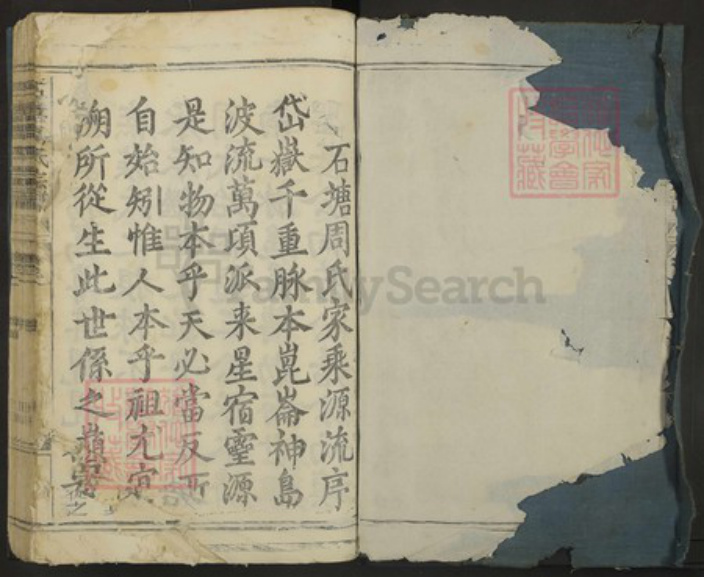 石塘周氏家乘源流序
岱嶽千重脉本崑崙神島
波流萬頃派来星宿靈源
是知物本乎天必當反所
自始矧惟人本乎祖尤宜
溯所從生此世係之
FamilySearch